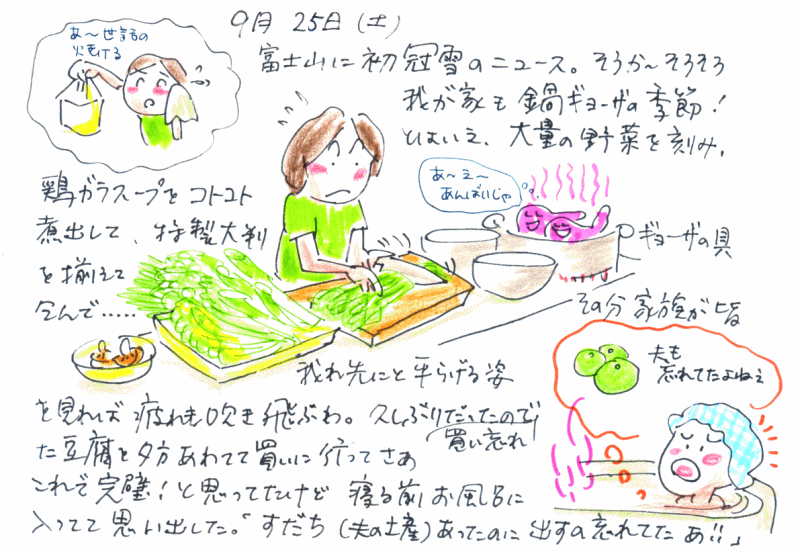 9月 25日(土)
富士山に初冠雪のニュース。そうか〜そろそろ
我が家も鍋ギョーザの季節!
とはいえ、大量の野菜を刻み、
鶏ガラスープをコトコト
煮出して、特製大判
ギョーザの具
を揃えて
包んで……
その分家族が皆
我れ先にと平らげる姿
を見れば疲れも吹き飛ぶわ。久しぶりだったので
買い忘れ
た豆腐を夕方あわてて買いに行ってさあ
これで完璧!と思ってたけど 寝る前お風呂に
入ってて思い出した。「すだち(夫の土産)あったのに出すの忘れてたぁ!!」
あ〜世話の
火をける
あ〜え〜
あんばいじゃ
夫も
忘れてたよねぇ